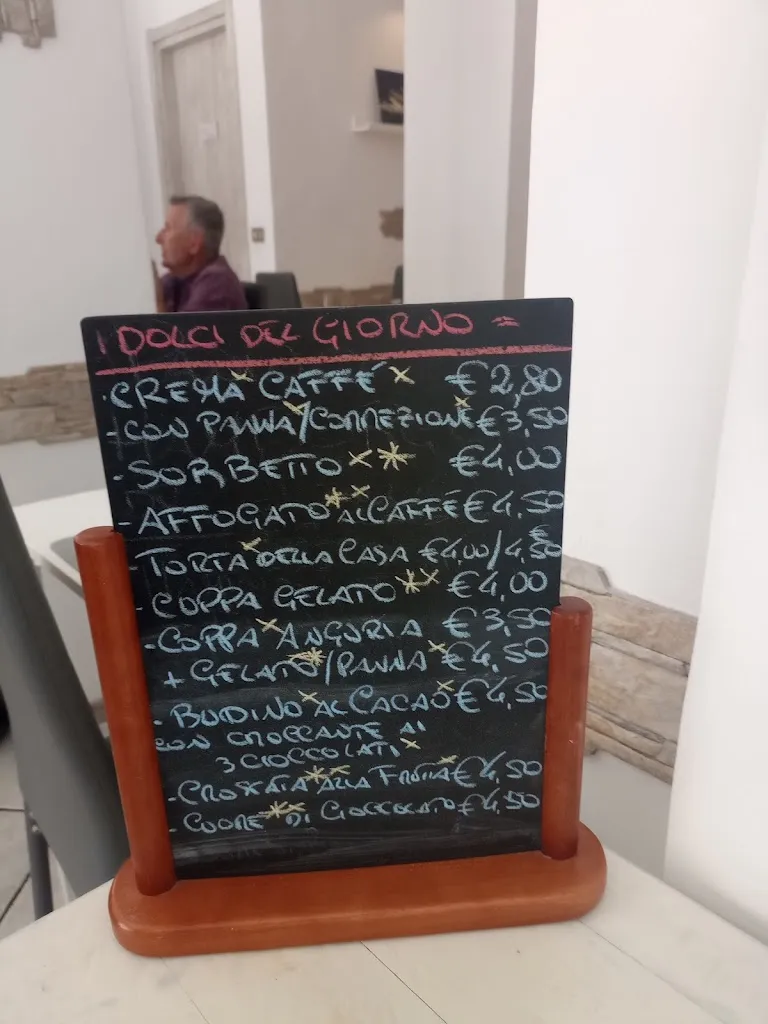 I DOLCI DEL GIORNO =
- CREMA CAFFÉ x € 2,80
- CON PANNA/CORREZIONE € 3,50
- SORBETTO x* € 4,00
- AFFOGATO *x AL CAFFÉ € 4,50
- TORTA DELLA CASA € 4,00/4,50 €
- COPPA GELATO *x € 4,00
- COPPA ANGURIA € 3,50
+ GELATO/PANNA x € 4,50
- BUDINO AL CACAO x € 4,50
CON CROCCANTE AI
3 CIOCCOLATI x
- CROSTATA *x ALLA FRUTTA € 4,50
- CUORE *x DI CIOCCOLATO € 4,50